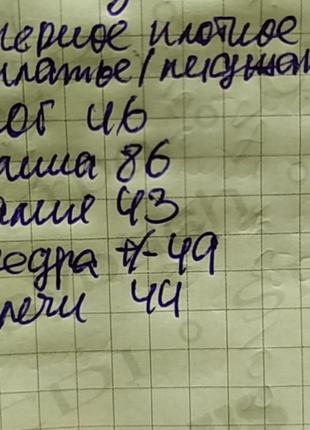 черное плотное
платье/пиджак
пог 46
длина 86
талия 43
бедра +- 49
плечи 44